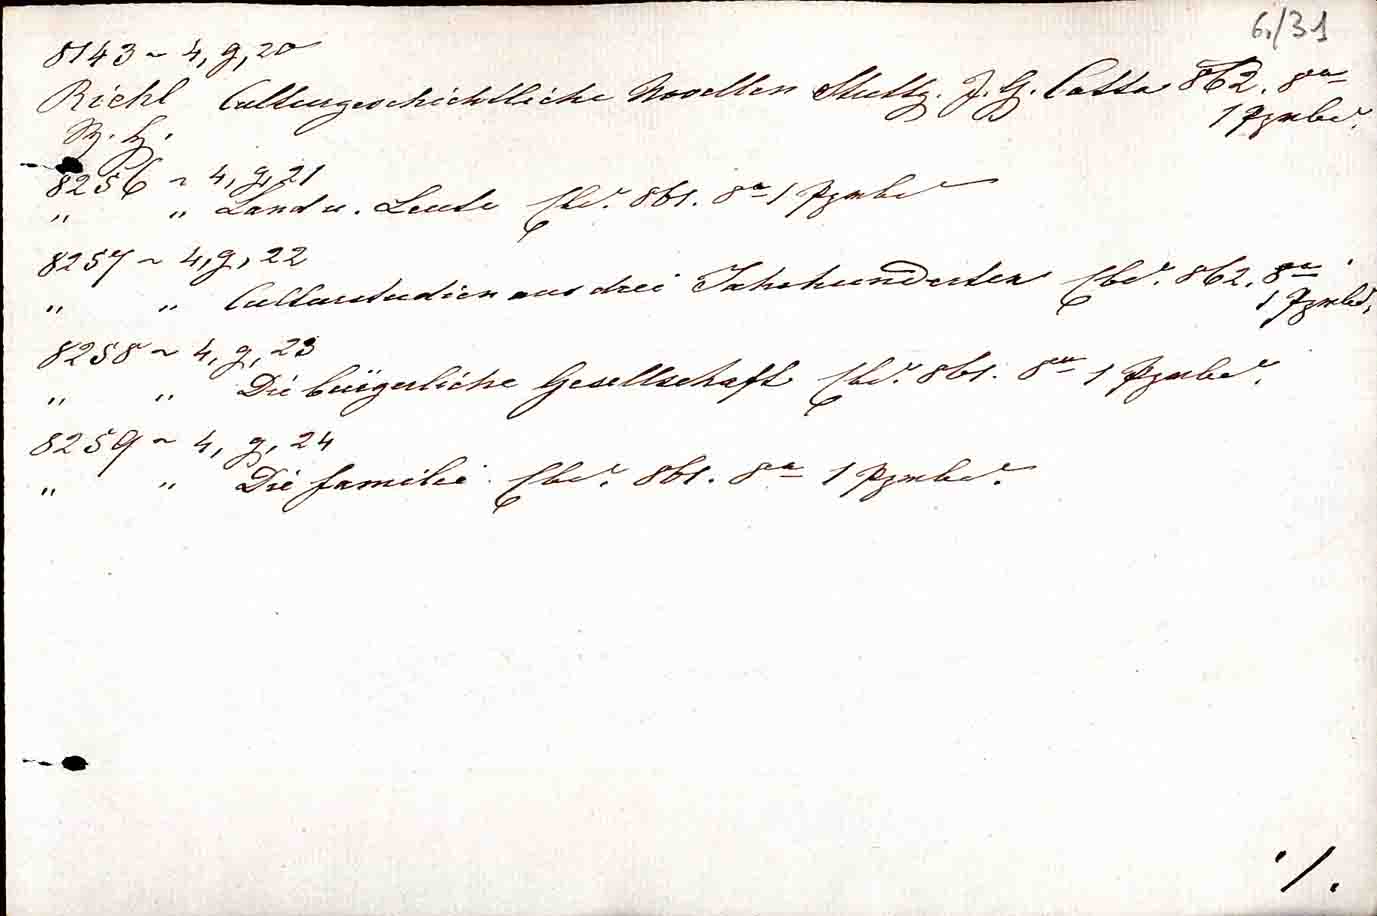 6./31
8143 ~ 4, g, 20
Riehl Culturgeschichtliche Novellen Stuttg. J. G. Cotta 862. 8°
W. H. 1 Pgmbd.
8256 ~ 4, g, 21
" " Land u. Leute Ebd. 861. 8° 1 Pgmbd
8257 ~ 4, g, 22
" " Culturstudien aus drei Jahrhunderten Ebd. 862. 8°
1 Pgmbd.
8258 ~ 4, g, 23
" " Die bürgerliche Gesellschaft Ebd. 861. 8° 1 Pgmbd.
8259 ~ 4, g, 24
" " Die familie. Ebd. 861. 8° 1 Pgmbd.
·/.